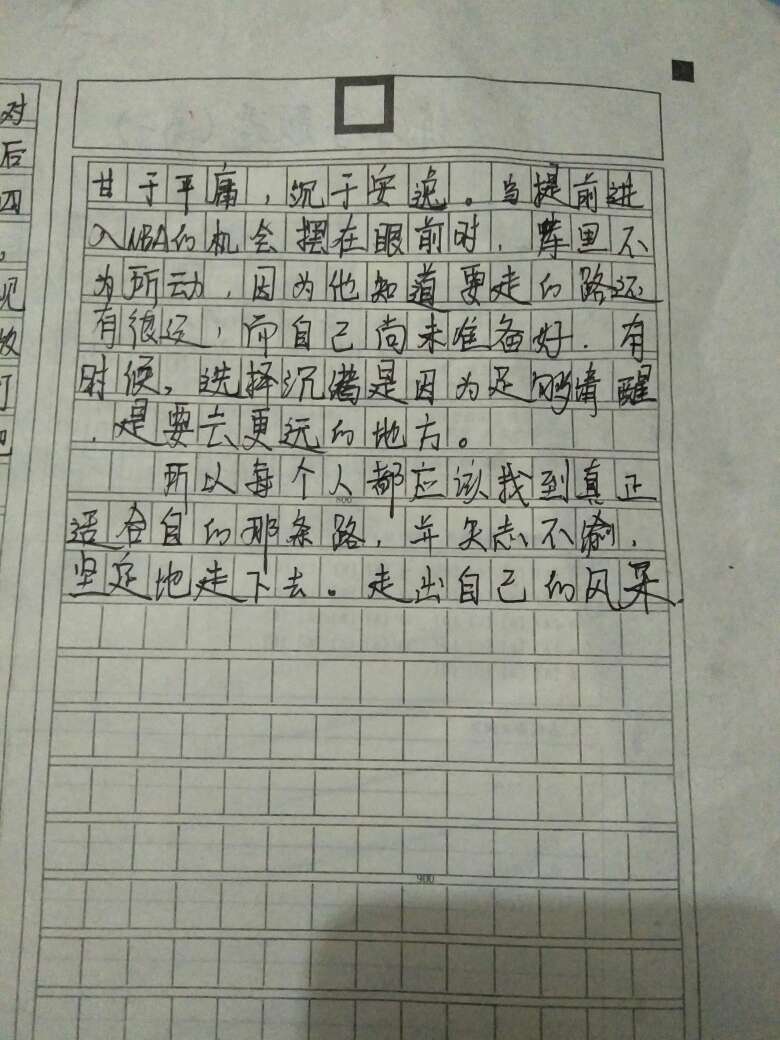 对
后
四
。
见
甘于平庸，沉于安逸。当提前进
入NBA的机会摆在眼前时，库里不
为所动，因为他知道要走的路还
有很远，而自己尚未准备好．有
时候，选择沉潜是因为足够清醒
，是要去更远的地方。
所以每个人都应该找到真正
800
适合自的那条路，并矢志不渝，
坚定地走下去。走出自己的风采．
900